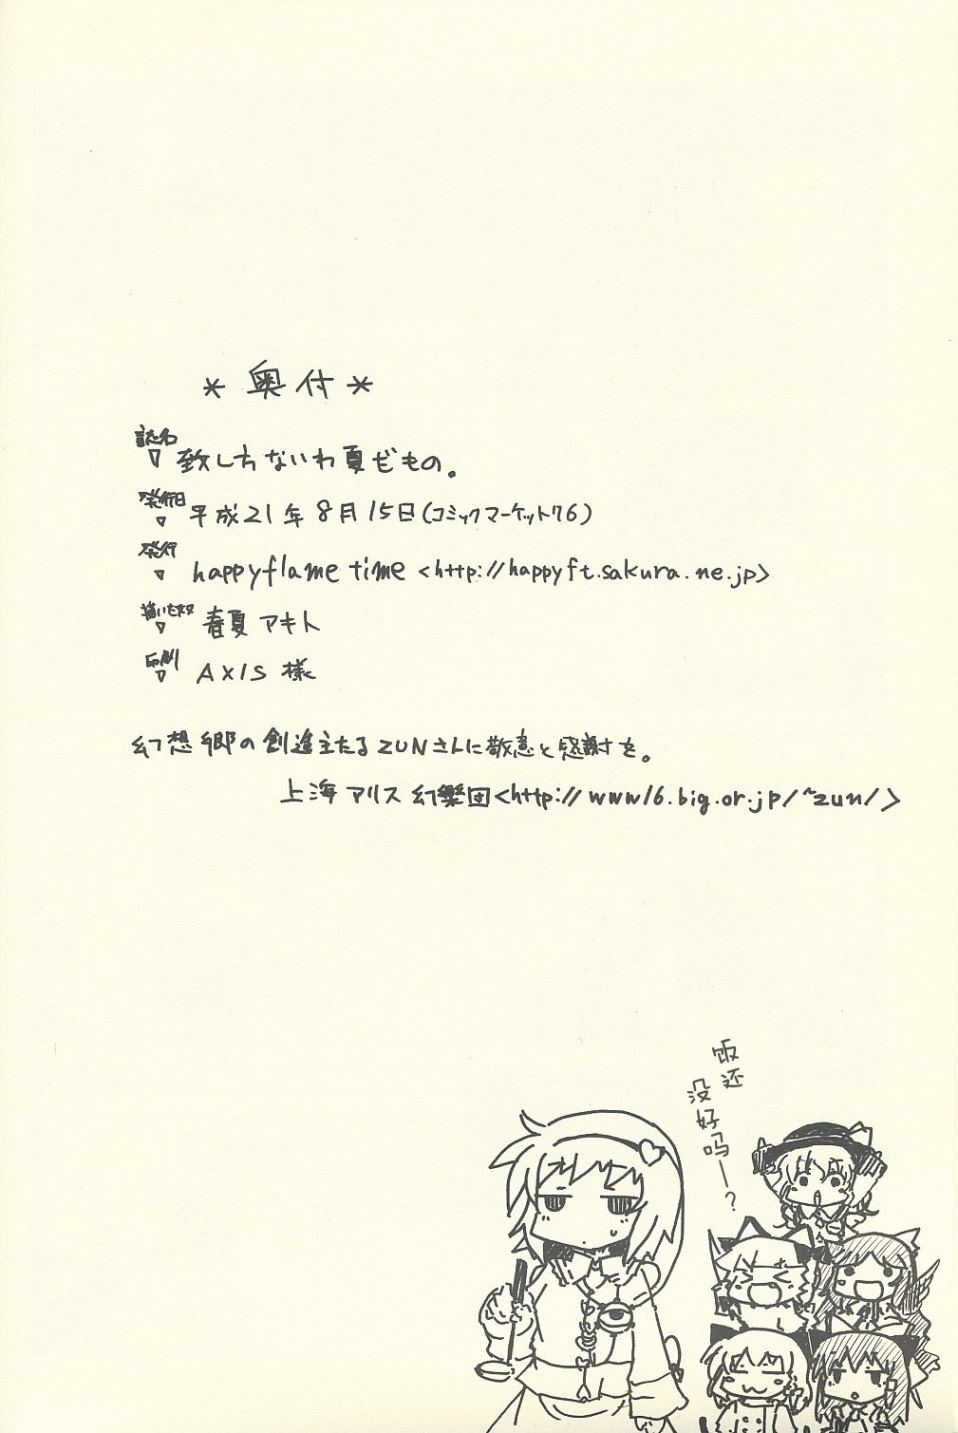 ＊ 奥付 ＊
誌名
致し方ないわ夏だもの。
発行日
平成21年 8月15日(コミックマーケット76)
発行
happyflame time <http://happyft.sakura.ne.jp>
春夏 アキト
印刷
AXIS 様
幻想郷の創造主たるZUNさんに敬意と感謝を。
上海アリス幻樂団<http://www16.big.or.jp/~zun/>
饭还
没好吗—?